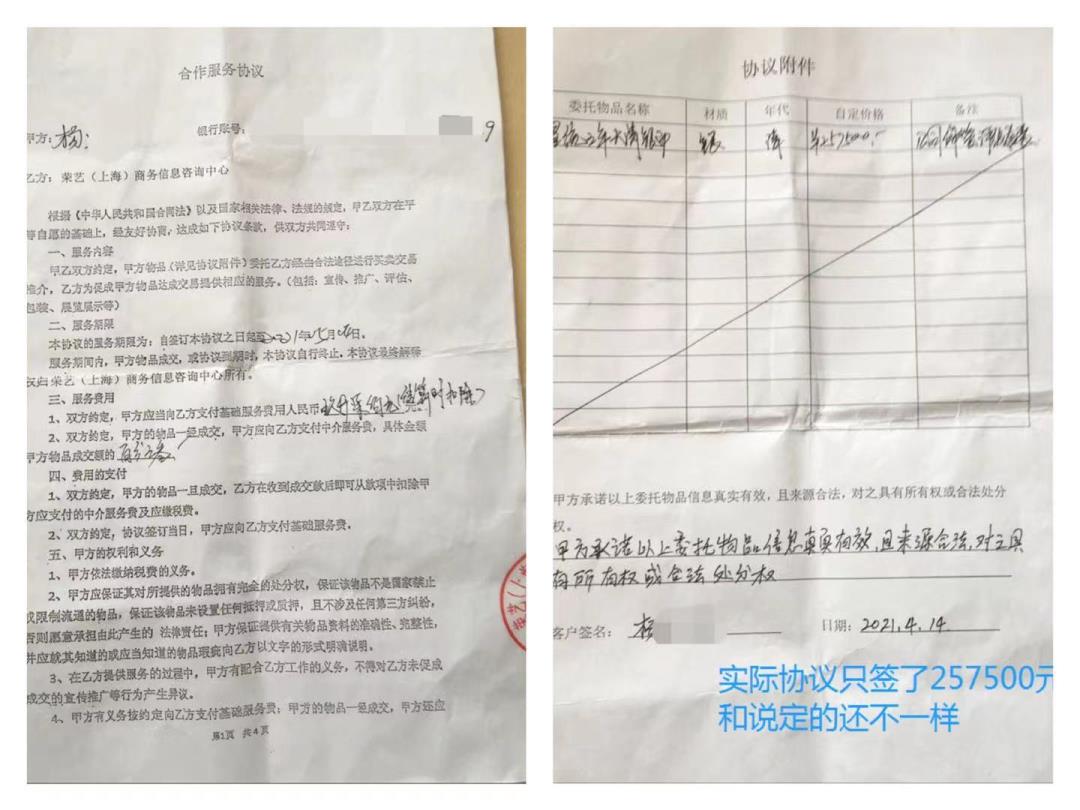 合作服务协议
甲方：杨：
银行账号：
9
乙方：荣艺（上海）商务信息咨询中心
根据《中华人民共和国合同法》以及国家相关法律、法规的规定，甲乙双方在平
等自愿的基础上，经友好协商，达成如下协议条款，供双方共同遵守：
一、服务内容
甲乙双方约定，甲方物品（详见协议附件）委托乙方经由合法途径进行买卖交易
推介，乙方为促成甲方物品达成交易提供相应的服务。（包括：宣传、推广、评估、
包装、展览展示等）
二、服务期限
本协议的服务期限为：自签订本协议之日起至2021年 月 日。
服务期间内，甲方物品成交，或协议到期时，本协议自行终止，本协议最终解释
权归荣艺（上海）商务信息咨询中心所有。
三、服务费用
1、双方约定，甲方应当向乙方支付基础服务费用人民币 （结算时扣除）
2、双方约定，甲方的物品一经成交，甲方应向乙方支付中介服务费，具体金额
甲方物品成交额的
四、费用的支付
1、双方约定，甲方的物品一旦成交，乙方在收到成交款后即可从款项中扣除甲
方应支付的中介服务费及应缴税费。
2、双方约定，协议签订当日，甲方应向乙方支付基础服务费。
五、甲方的权利和义务
1、甲方依法缴纳税费的义务。
2、甲方应保证其对所提供的物品拥有完全的处分权，保证该物品不是国家禁止
或限制流通的物品，保证该物品未设置任何抵押或质押，且不涉及任何第三方纠纷，
否则愿意承担由此产生的 法律责任；甲方保证提供有关物品资料的准确性、完整性，
并应就其知道的或应当知道的物品瑕疵向乙方以文字的形式明确说明。
3、在乙方提供服务的过程中，甲方有配合乙方工作的义务，不得对乙方未促成
成交的宣传推广等行为产生异议。
4、甲方有义务按约定向乙方支付基础服务费；甲方的物品一经成交，甲方还应
第1页 共4页
协议附件
委托物品名称 材质 年代 自定价格 备注
五年大清银币 银 清 ¥257500.
甲方承诺以上委托物品信息真实有效，且来源合法，对之具有所有权或合法处分
权。
甲方承诺以上委托物品信息真实有效，且来源合法，对之具
有所有权或合法处分权
客户签名：杨 日期：2021.4.14
实际协议只签了257500元
和说定的还不一样